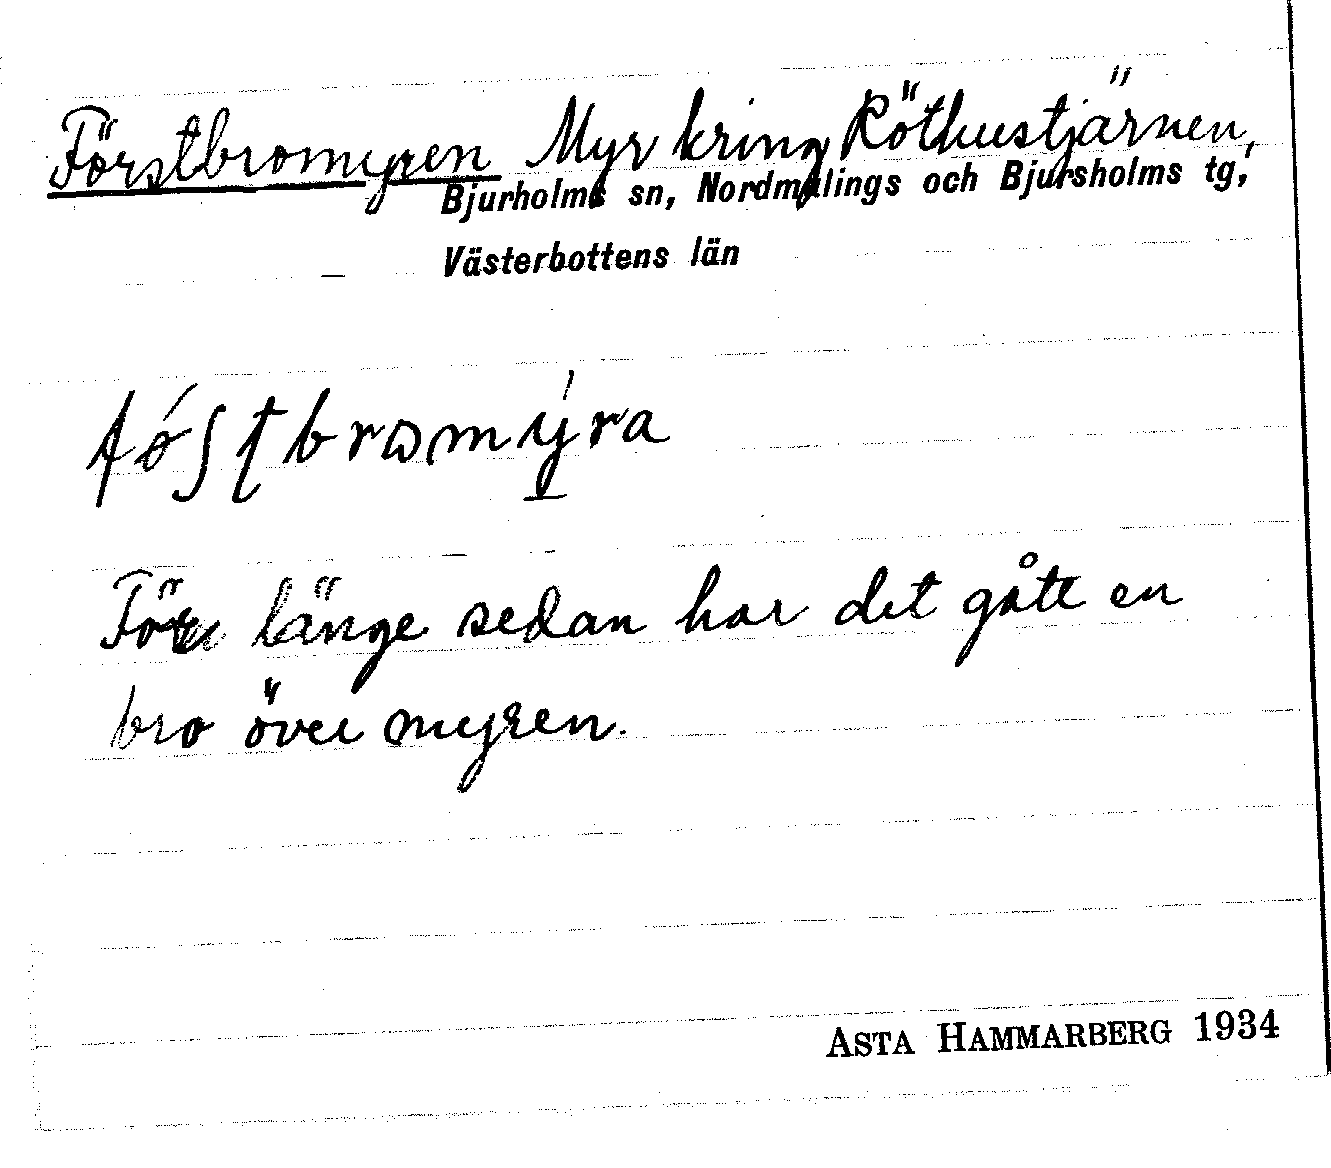 Förstbromyren Myr kring Röthustjärnen,
Bjurholms sn, Nordmalings och Bjursholms tg,
Västerbottens län
fǿʃtbromýra
För länge sedan har det gått en
bro över myren.
ASTA HAMMARBERG 1934